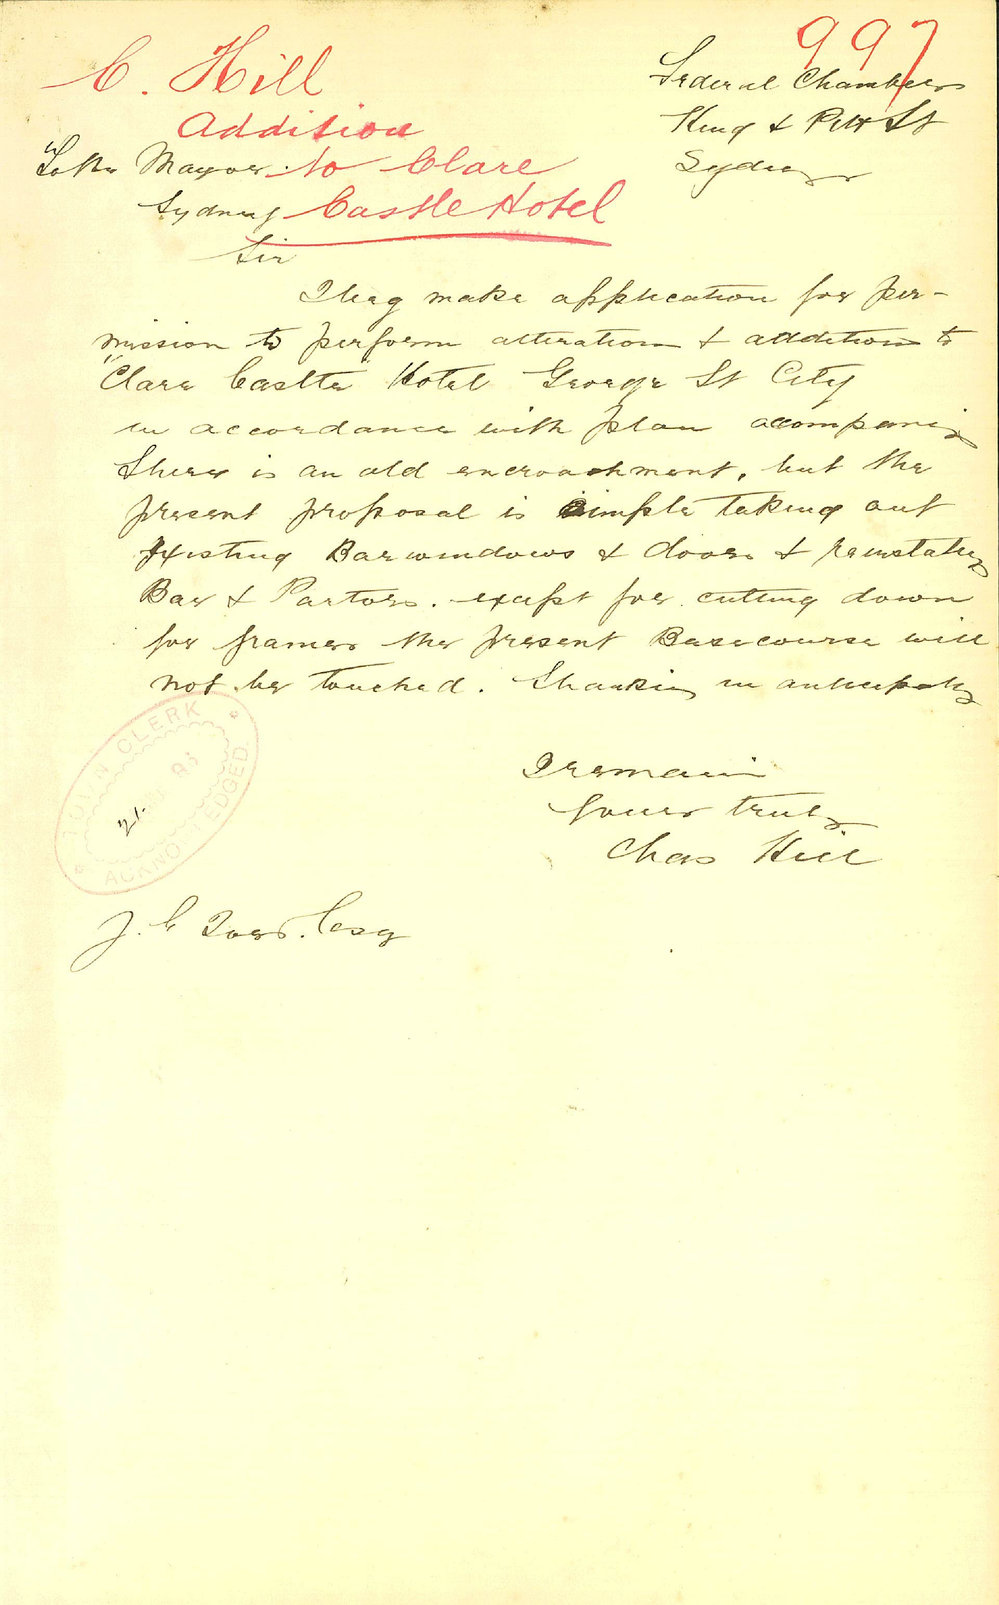 997
C. Hill
Addition
to Clare
Castle Hotel
Federal Chambers
King & Pitt St
Sydney
To the Mayor
Sydney
Sir
I beg make application for per-
mission to perform alteration & addition to
"Clare Castle Hotel George St City
in accordance with plan
There is an old encroachment, but the
present proposal is simple taking out
existing Bar windows & doors & reinstating
Bar & Parlors. except for cutting down
for frames the present Basecourse will
not be touched. Thanking in
I remain
Yours truly
Chas Hill
TOWN CLERK
21
ACKNOWLEDGED
J. C Esq